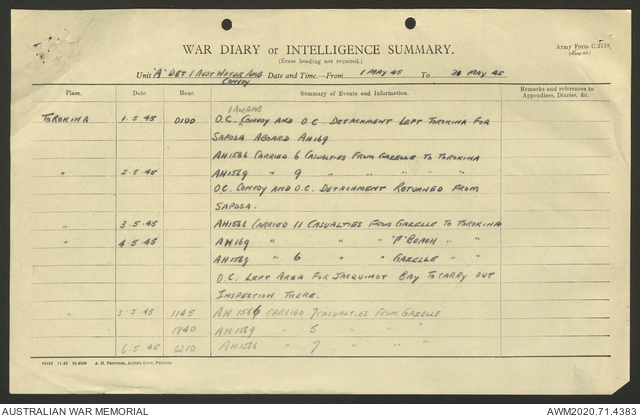 WAR DIARY or INTELLIGENCE SUMMARY.
(Erase heading not required.)
Army Form C.2118.
Unit "A" DET 1 AUST WATER AMB CONVOY Date and Time.—From 1 MAY 45 To 30 MAY 45
Place. Date. Hour. Summary of Events and Information. Remarks and references to Appendices, Diaries, &c.
TOROKINA 1.5.45 0100 O.C. CONVOY AND O.C. DETACHMENT LEFT TOROKINA FOR
SAPOSA ABOARD AH169
AH1566 CARRIED 6 CASUALTIES FROM GAZELLE TO TOROKINA
" 2.5.45 AH1569 " 9 " " " " "
O.C. CONVOY AND O.C. DETACHMENT RETURNED FROM
SAPOSA.
" 3.5.45 AH1566 CARRIED 11 CASUALTIES FROM GAZELLE TO TOROKINA
" 4.5.45 AH169 " " " "F" BEACH " "
AH1569 " 6 " " GAZELLE " "
O.C. LEFT AREA FOR JACQUINOT BAY TO CARRY OUT
INSPECTION THERE.
" 5.5.45 1145 AH1566 CARRIED 7 CASUALTIES FROM GAZELLE
1840 AH1569 " 5 " " "
6.5.45 1210 AH1566 " 7 " " "
AUSTRALIAN WAR MEMORIAL AWM2020.71.4383